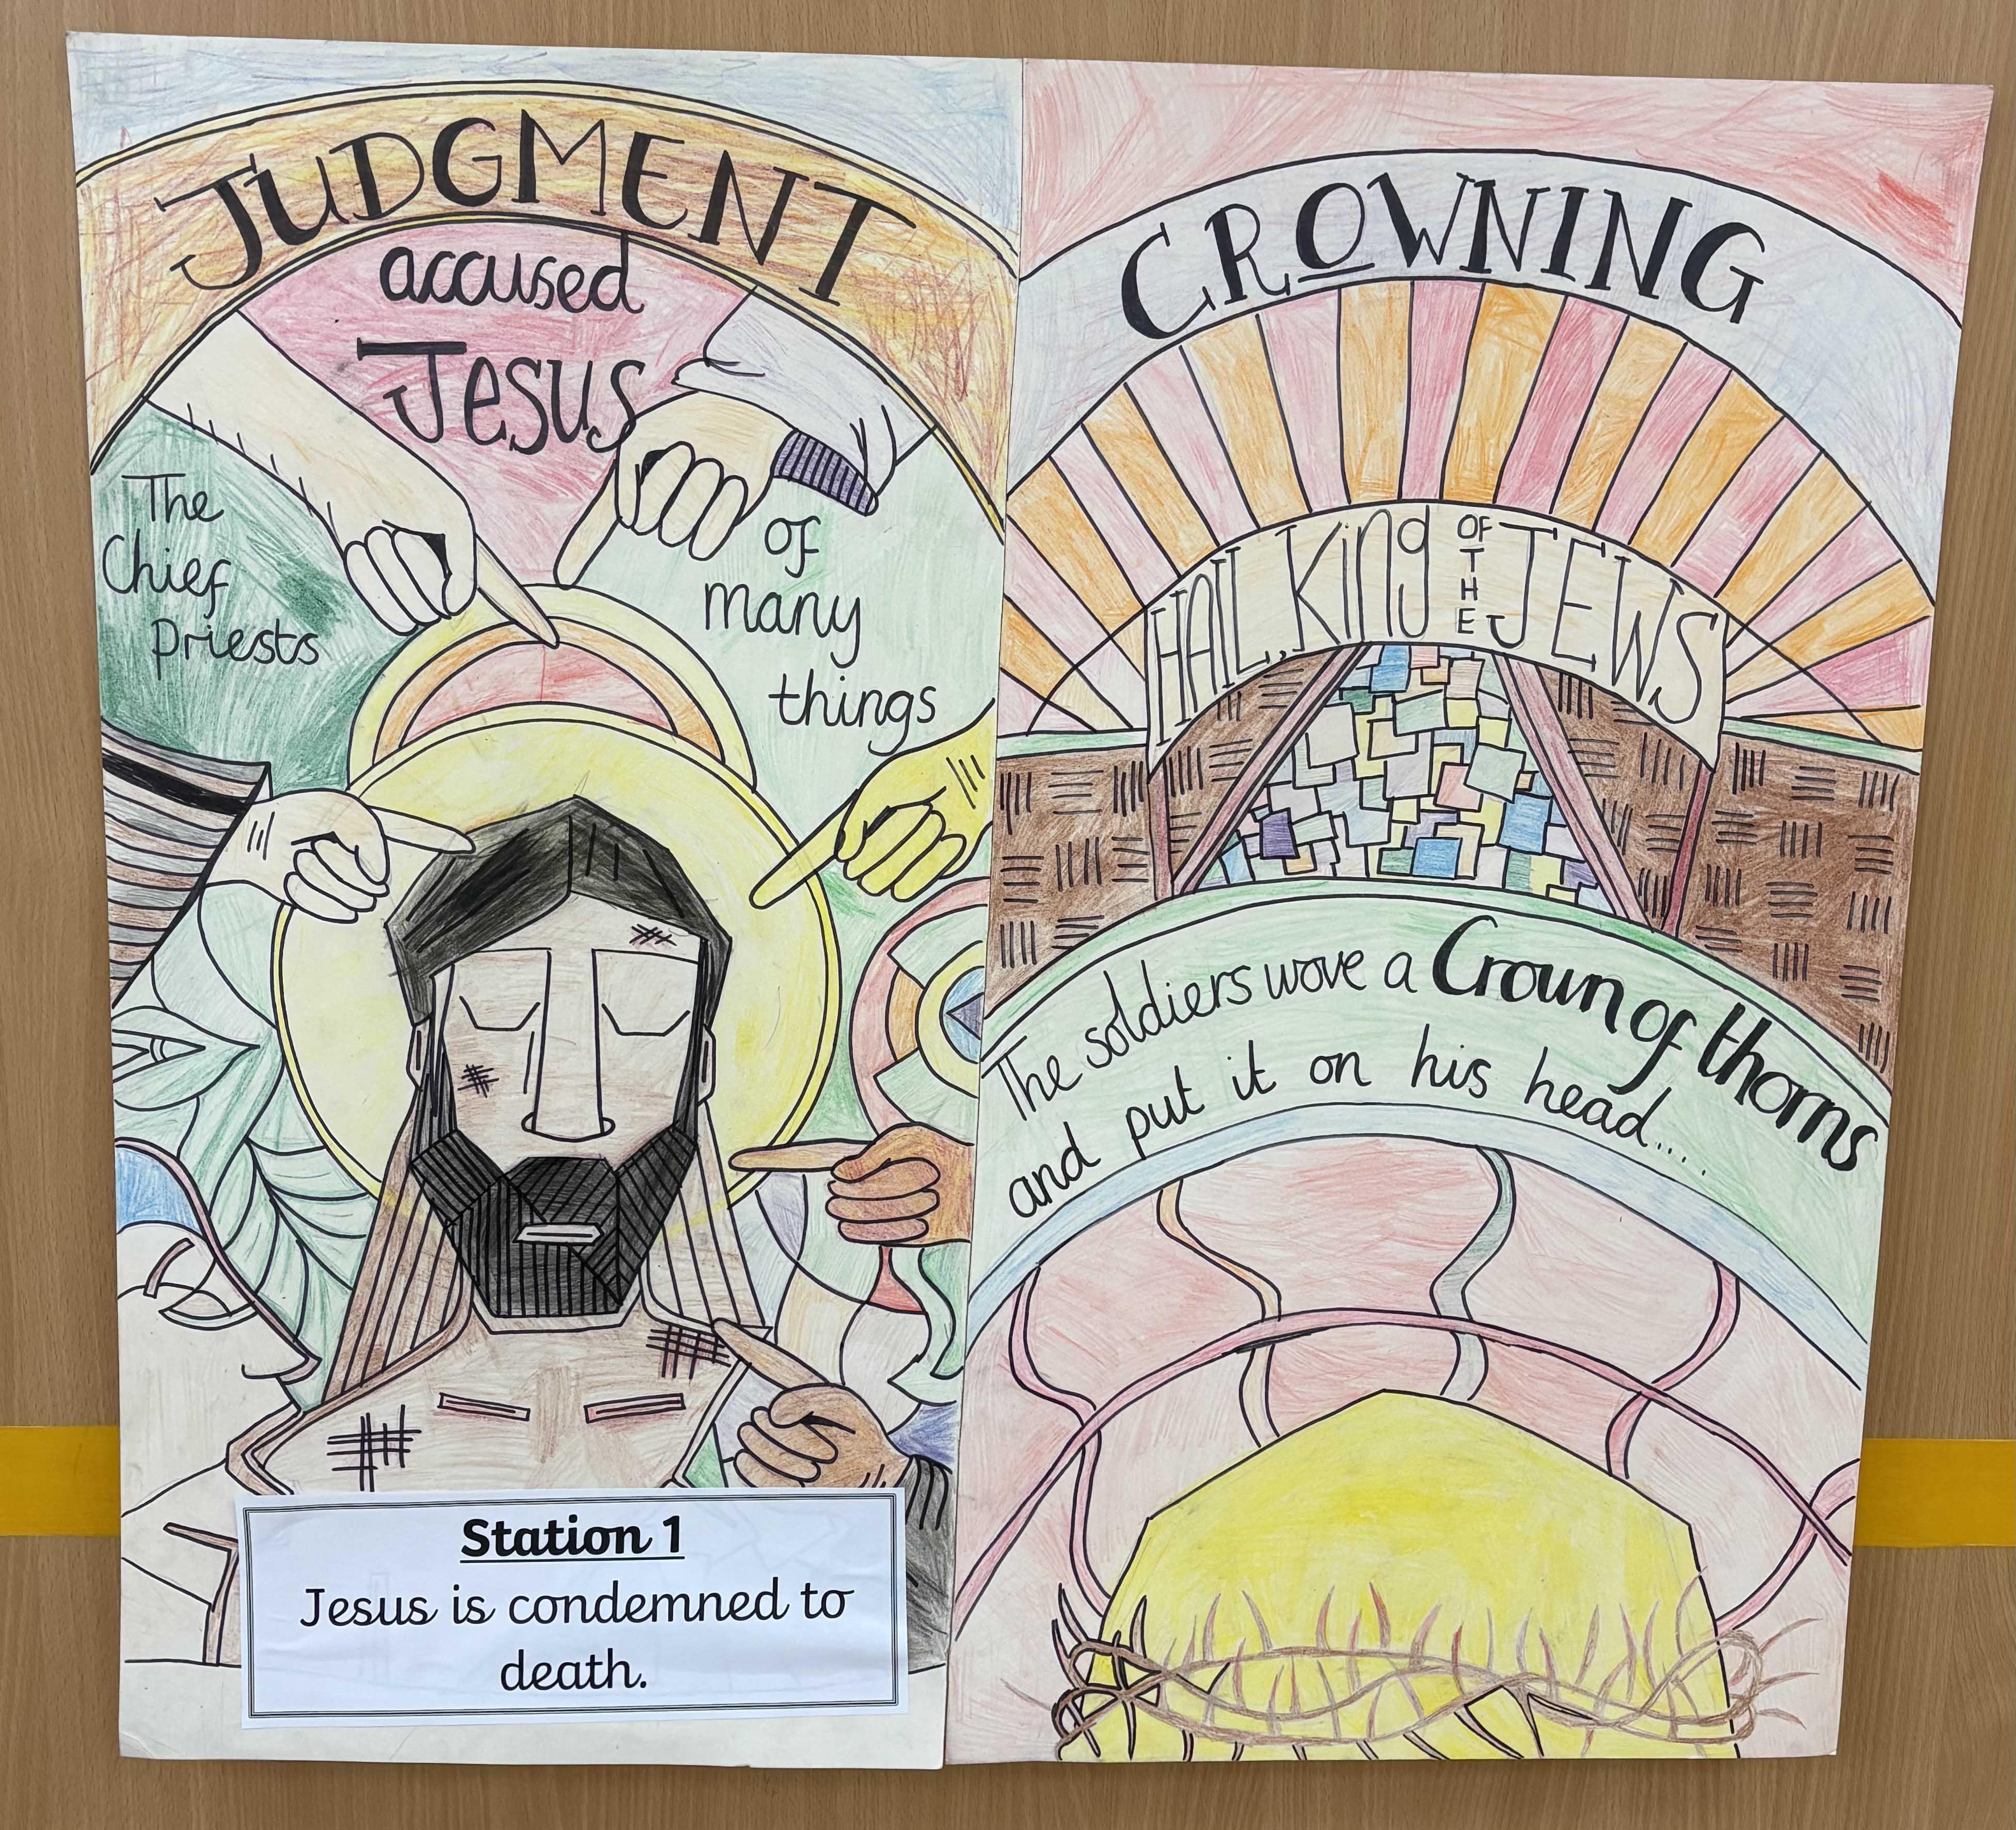 JUDGMENT
The
Chief
priests
accused
Jesus
of
many
things
Station 1
Jesus is condemned to
death.
CROWNING
HAIL, King OF THE JEWS
The soldiers wove a Crown of thorns
and put it on his head....